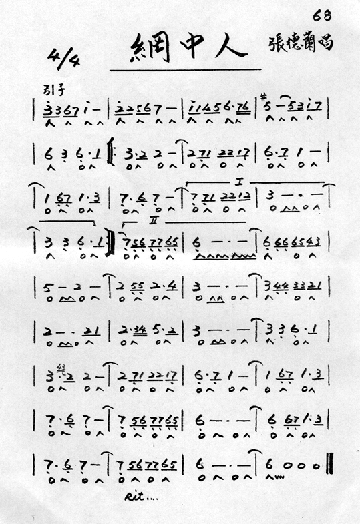 68
網中人
張德蘭唱
4/4
引子
| 3367i- | 22567- | i1456·76 | #5-5317 |
| 636·1 |: 3·22- | 2712217 | 6·71- |
| 1671·3 | 7·67- | I 7712212 | 3--- |
| 336·1 :| II 7567765 | 6--- | 6666543 |
| 5-2- | 2552·4 | 3--- | 3443321 |
| 2--21 | 2·345·2 | 3--- | 336·1 |
| 3·22- | 2712217 | 6·71- | 1671·3 |
| 7·67- | 7567765 | 6--- | 6671·3 |
| 7·67- | 7567765 | 6--- | 6000 ||
Rit....